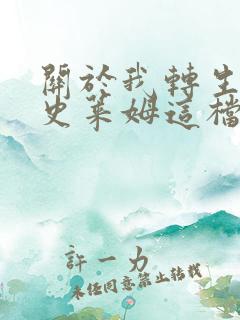 關於我轉生
史萊姆這檔
許一力
未任同意禁止转载